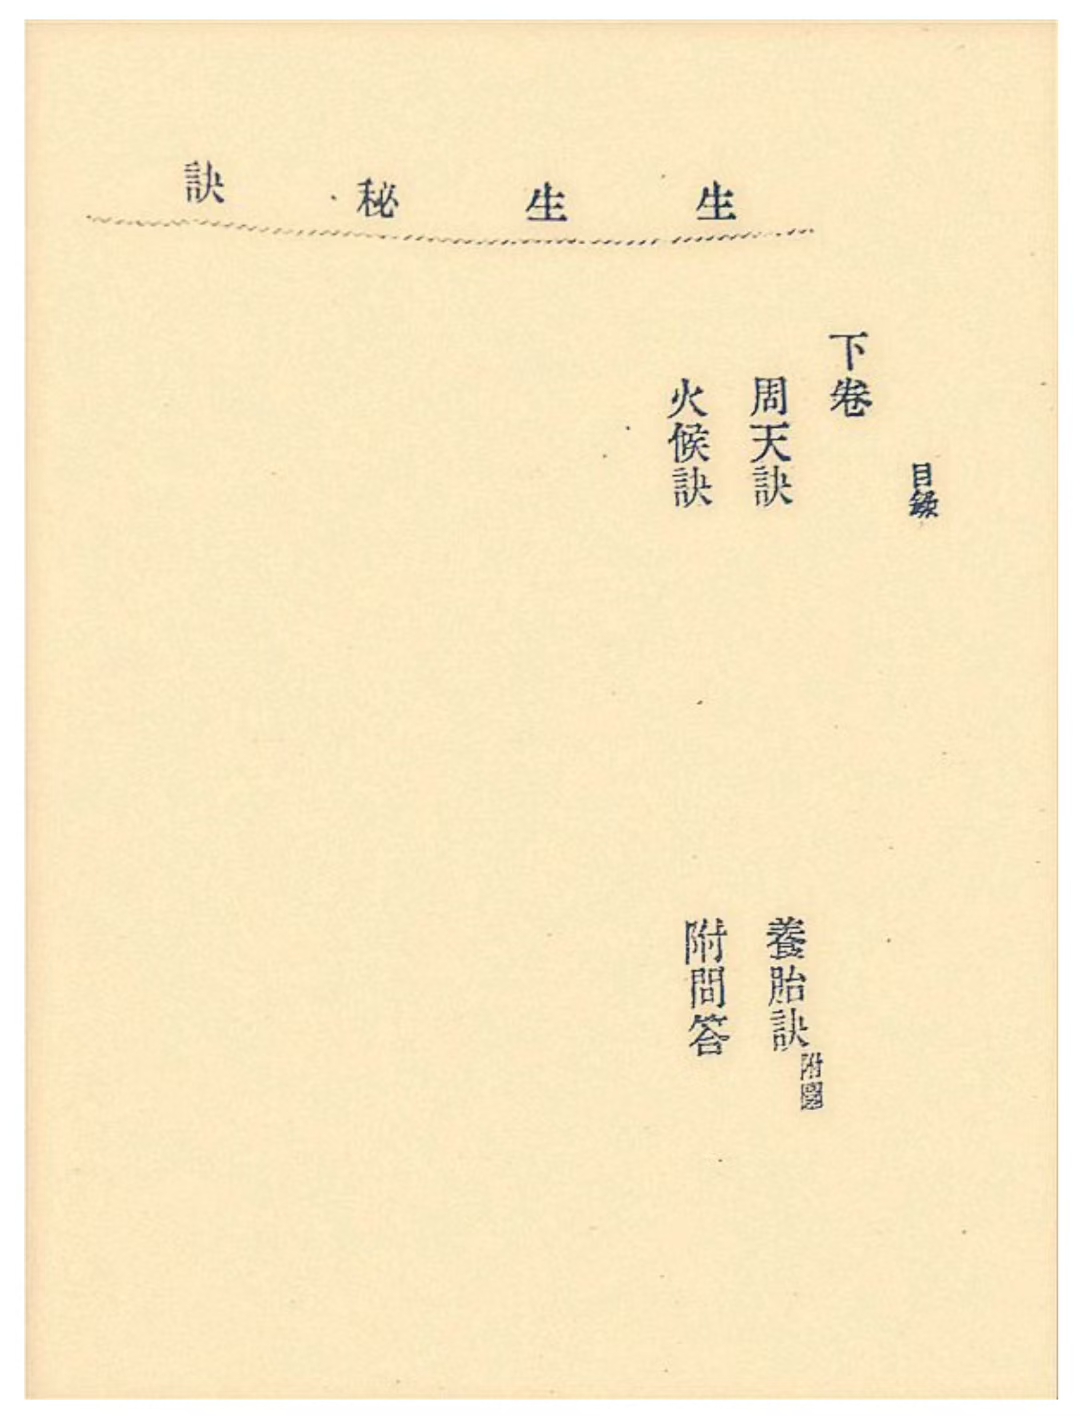 生生秘訣
目錄
下卷
周天訣
養胎訣附圖
火候訣
附問答